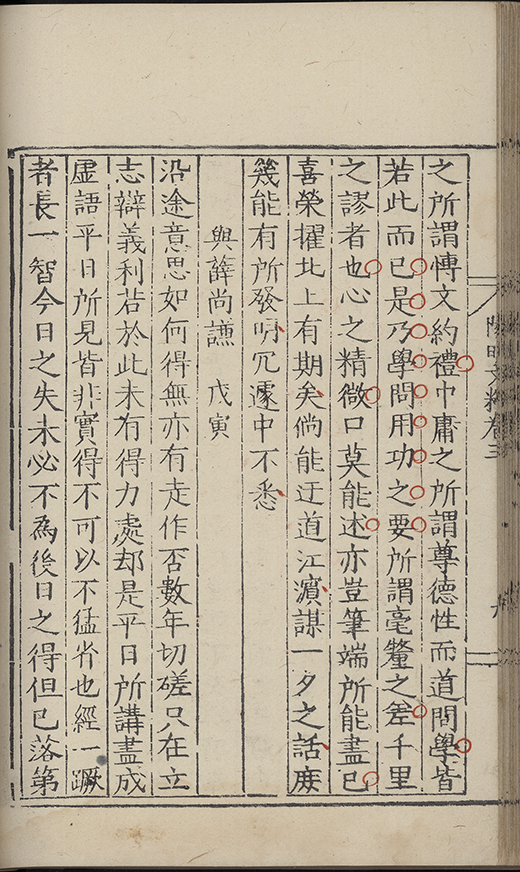 之所謂博文約禮中庸之所謂尊德性而道問學皆
若此而已是乃學問用功之要所謂毫釐之差千里
之謬者也心之精微口莫能述亦豈筆端所能盡已
喜榮擢北上有期矣倘能迂道江濱謀一夕之話庶
幾能有所發明冗遽中不悉
與薛尚謙 戊寅
沿途意思如何得無亦有走作否數年切磋只在立
志辯義利若於此未有得力處却是平日所講盡成
虛語平日所見皆非實得不可以不猛省也經一蹶
者長一智今日之失未必不為後日之得但已落第
陽明文粹卷三